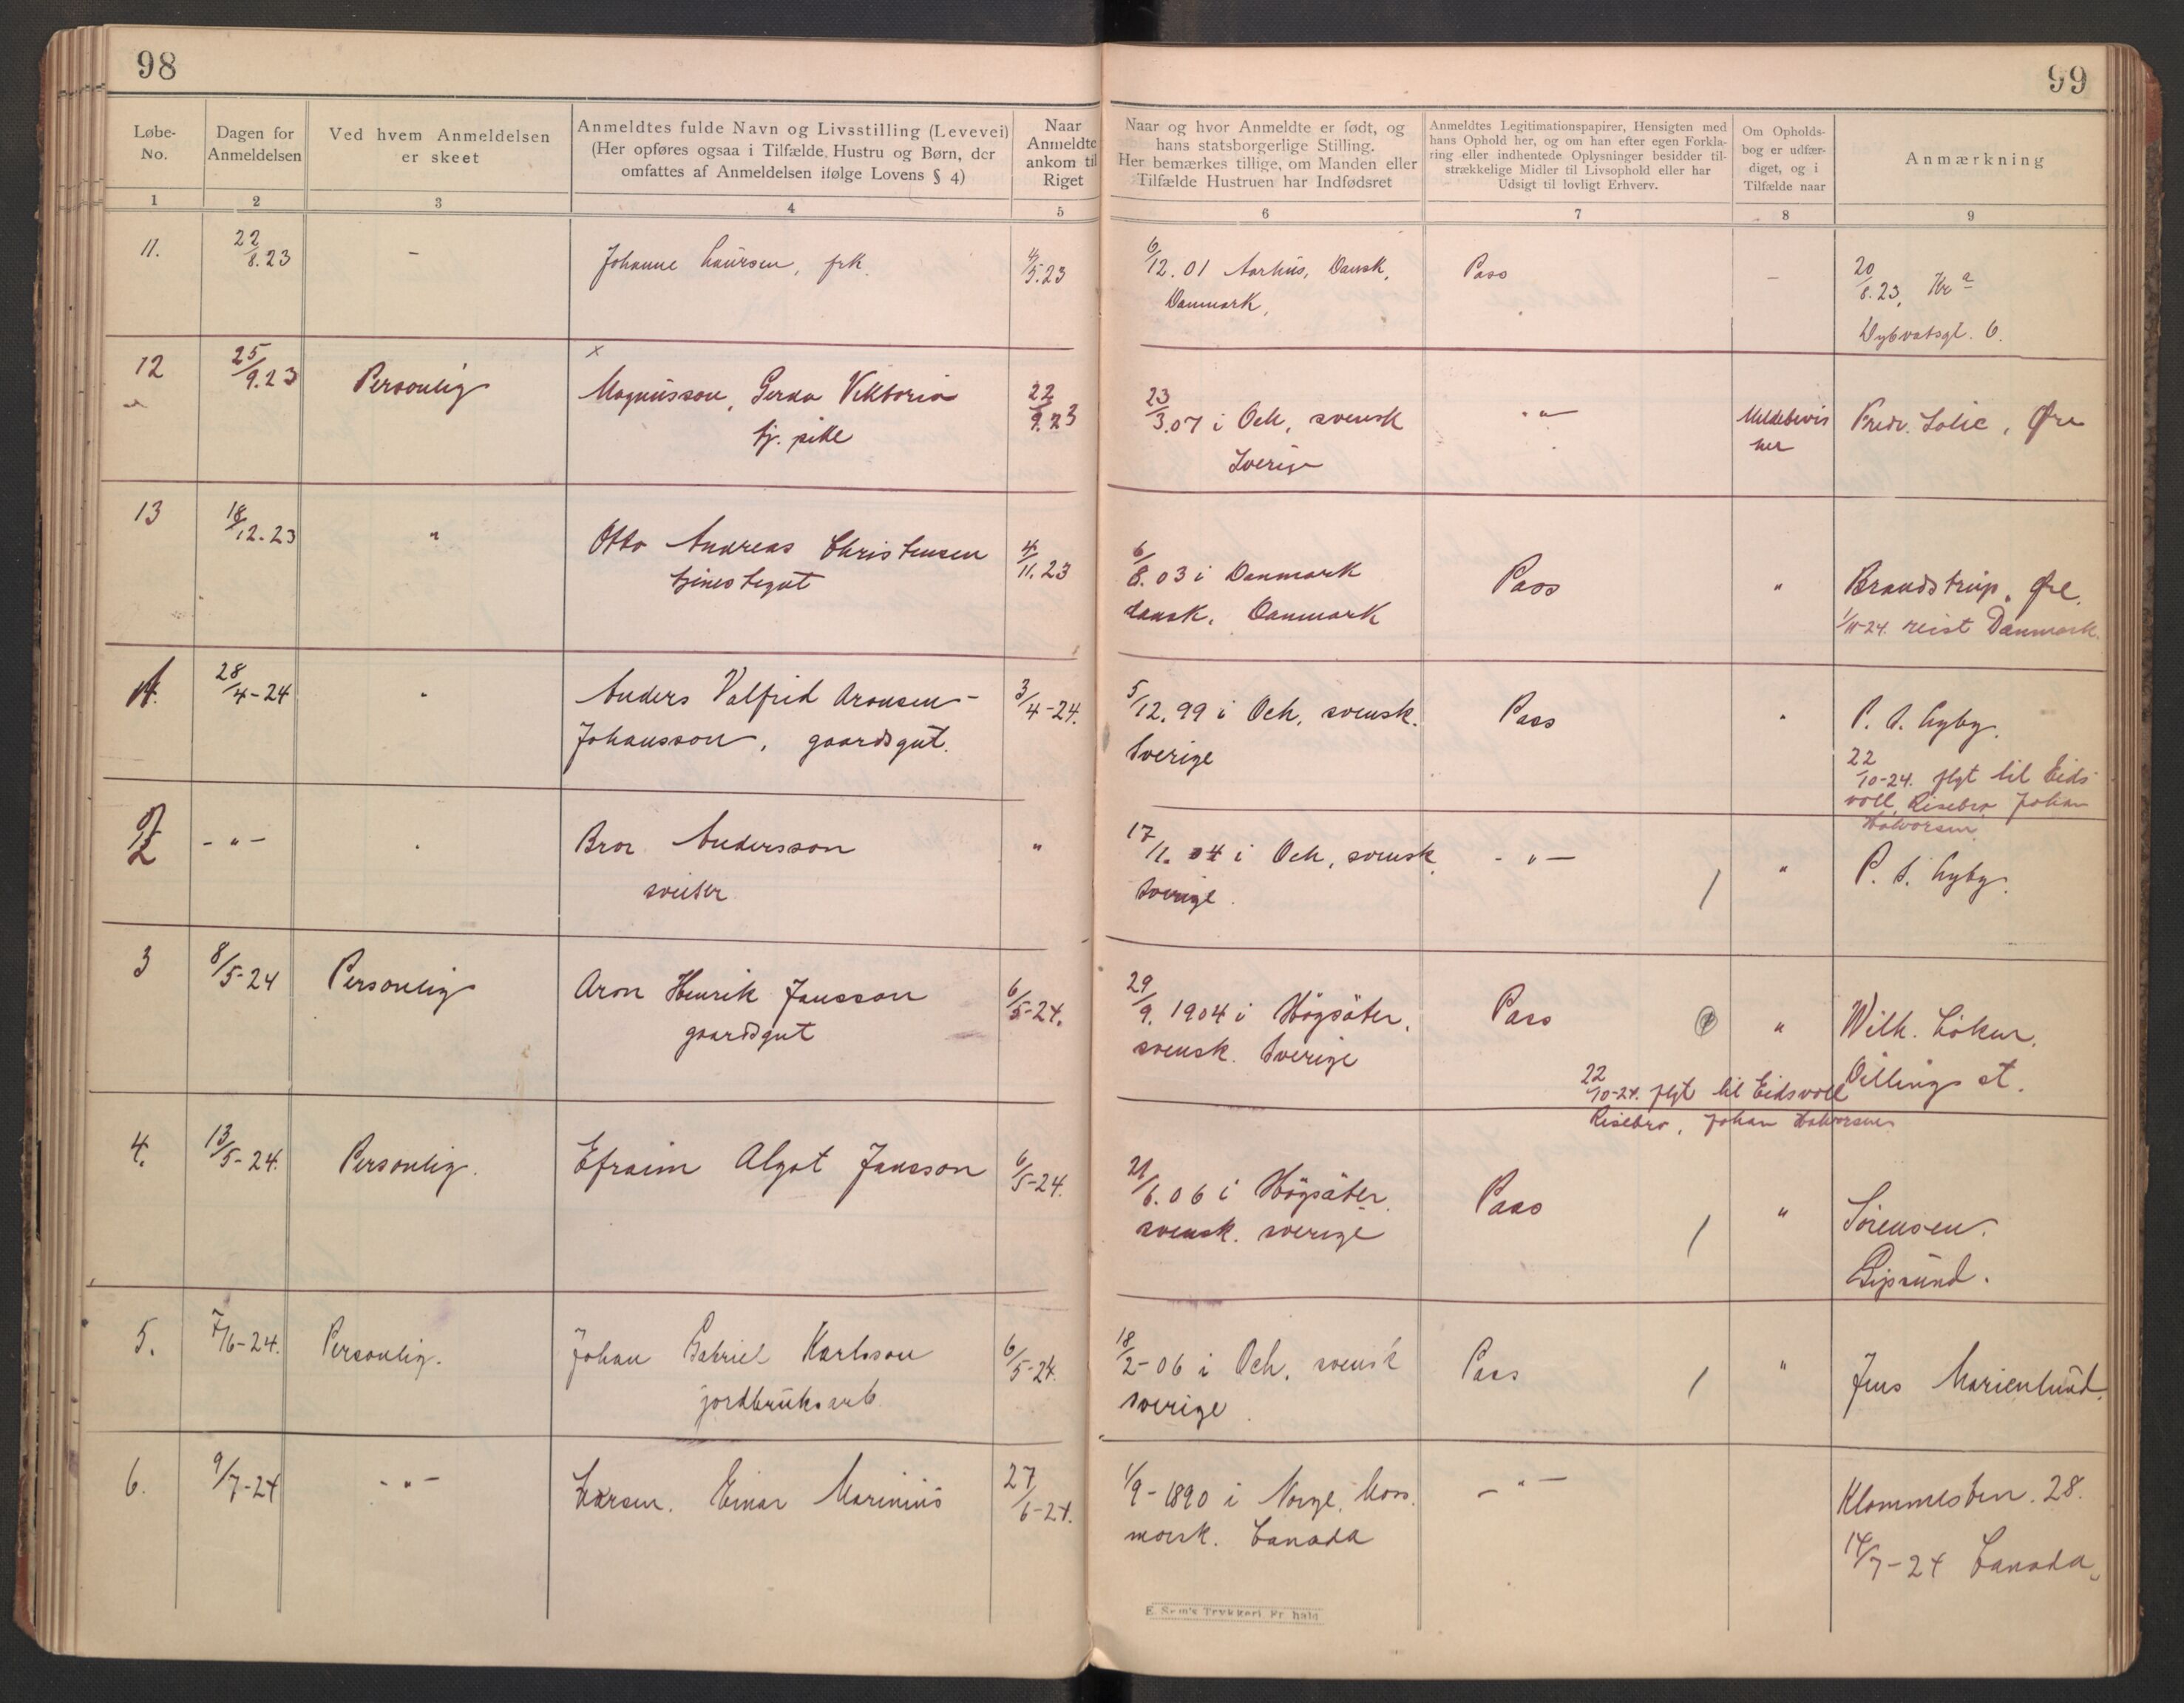 98
99
Løbe-No.
Dagen for Anmeldelsen
Ved hvem Anmeldelsen er skeet
Anmeldtes fulde Navn og Livsstilling (Levevei)
(Her opføres ogsaa i Tilfælde Hustru og Børn, der
omfattes af Anmeldelsen ifølge Lovens § 4)
Naar Anmeldte ankom til Riget
Naar og hvor Anmeldte er født, og
hans statsborgerlige Stilling.
Her bemærkes tillige, om Manden eller
Tilfælde Hustruen har Indfødsret
Anmeldtes Legitimationspapirer, Hensigten med
hans Ophold her, og om han efter egen Forkla-
ring eller indhentede Oplysninger besidder til-
strækkelige Midler til Livsophold eller har
Udsigt til lovligt Erhverv.
Om Opholds-
bog er udfær-
diget, og i
Tilfælde naar
Anmærkning
1 2 3 4 5 6 7 8 9
11. 22/8.23 - Johanne Laursen, frk. 4/5.23 6/12.01 Aarhus, Dansk, Pass - 20/8.23, Kra
Danmark,
6.
12 25/9.23 Personlig Magnusson, Gerda Viktoria 22/9.23 23/3.07 i Och, svensk -"- Meldebevis Fredr. Solie, Øre
tj. pike Sverige her
13 18/12.23 " Otto Andreas Christensen 4/11.23 6/8.03 i Danmark Pass " Brandstrup, Øre.
tjenestegut dansk. Danmark 1/11-24. reist Danmark.
1. 28/4-24 " Anders Valfrid Aronsen- 3/4-24. 5/12.99 i Och, svensk. Pass " P. A. Lyby.
Johansson, gaardsgut. Sverige
22/10-24. flgt til Eids-
voll, Risebro, Johan
Halvorsen
2 -"- " Bror Andersson " 17/11.04 i Och, svensk. -"- " P. A. Lyby.
sveitser Sverige.
3 8/5-24 Personlig Aron Henrik Jansson 6/5-24. 29/9.1904 i Högsäter, Pass " Wilh. Löken.
gaardsgut svensk. Sverige Dillings st.
22/10-24. flgt til Eidsvoll
Risebro, Johan Halvorsen
4. 13/5-24. Personlig. Efraim Algot Jansson 6/5-24. 21/6.06 i Högsäter. Pass " Sörensen.
svensk. sverige Pipsund.
5. 7/6-24. Personlig. Johan Gabriel Karlsson 6/5-24. 18/2-06 i Och, svensk Pass " Jens Marienlund.
jordbruksarb. sverige.
6. 9/7-24 -"- Larsen. Einar Marinius 27/6-24. 1/9-1890 i Norge, Moss. -"- Klommesten. 28.
norsk. Canada 14/7-24 Canada
E. Sem's Trykkeri, Fr.hald